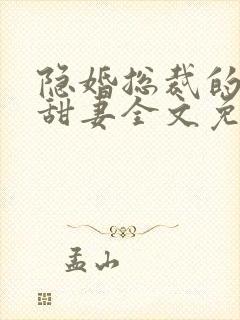 隐婚总裁的
甜妻全文免
孟山